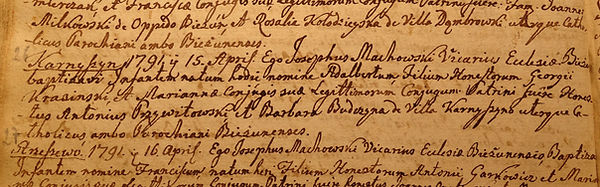 et Franciscæ Conjugis suæ Legittimorum Conjugum Patrini fuere: Fam: Joannes
Milkowski de Oppido Bieżuń Et Rosalie Kołodzieyska de Villa Dąmbrowki uterque Catho
licus Parochiani ambo Bieżunenses.
Karnyszyn 1791 ÿ 15. April. Ego Josephus Machowski Vicarius Eclesiæ Bieżu
baptizavi Infantem natum hodie nomine Adalbertum Filium Honestorum Georgii
Krasinski Et Mariannæ Conjugis suæ Legittimorum Conjugum. Patrini fuere Hones
tus Antonius Przewitowski Et Barbara Budczyna de Villa Karnyszyno uterque Ca
tholicus ambo Parochiani Bieżunenses.
1791. ÿ 16 April. Ego Josephus Machowski Vicarius Eclesiæ Bieżunensis Baptizavi
Infantem nomine Franciscum natum heri Filium Honestorum Antonii Garkowicz et Maria
Conjugum Patrini fuere honestus